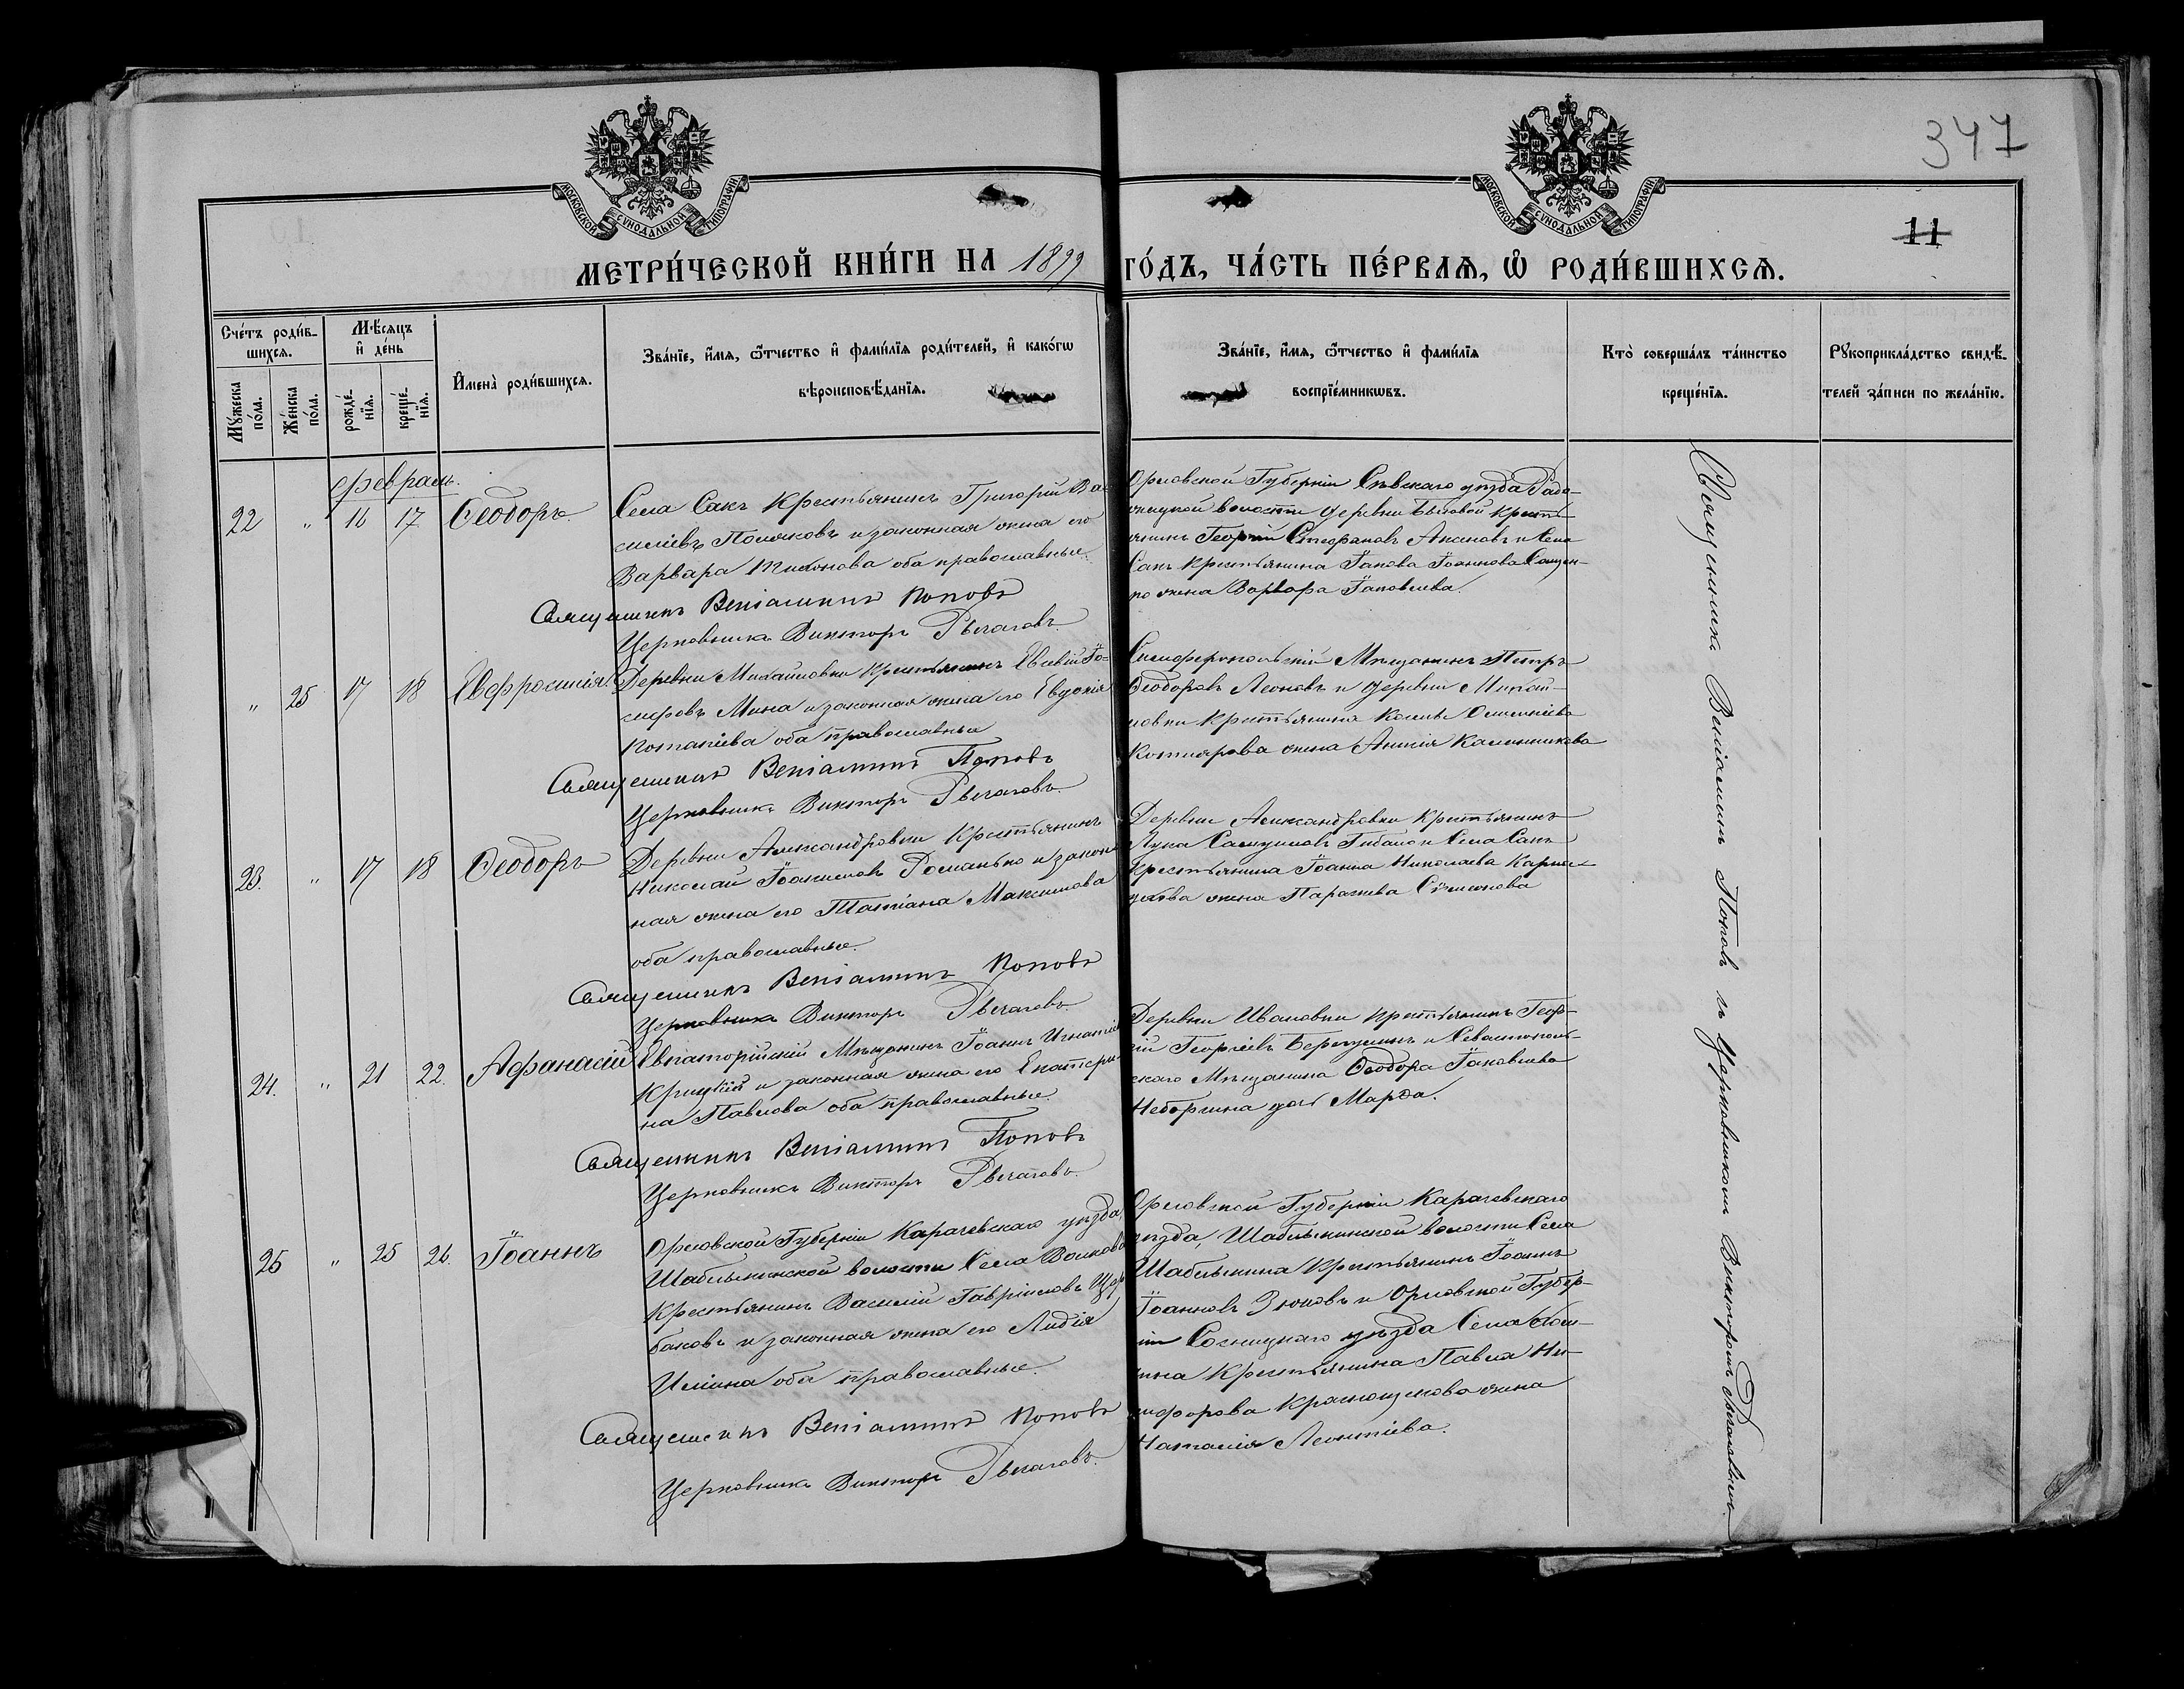 347
11
МОСКОВСКОЙ СѴНОДАЛЬНОЙ ТИПОГРАФІИ
МОСКОВСКОЙ СѴНОДАЛЬНОЙ ТИПОГРАФІИ
МЕТРИ́ЧЕСКОЙ КНИ́ГИ НА 1899 ГО́ДЪ, ЧА́СТЬ ПЕ́РВАѦ, Ѽ РОДИ́ВШИХСѦ.
Сче́тъ роди́в-
шихсѧ.
Мꙋ́жеска по́ла.
Же́нска по́ла.
Мѣ́сѧцъ и҆ де́нь
рожде́-нїѧ.
креще́-нїѧ.
И҆мена̀ роди́вшихсѧ.
Зва́нїе, и҆́мѧ, ѻ҆́тчество и҆ фами́лїѧ роди́телей, и҆ како́гѡ
вѣроисповѣ́данїѧ.
Зва́нїе, и҆́мѧ, ѻ҆́тчество и҆ фами́лїѧ
воспрїе́мникѡвъ.
Кто̀ соверша́лъ та́инство
креще́нїѧ.
Рꙋкоприкла́дство свидѣ́-
телей за́писи по жела́нїю.
февраль.
22 " 16 17 Ѳеодоръ.
Села Сакъ Крестьянинъ Григорій Ва-
силіевъ Поляковъ и законная жена его
Варвара Тихонова оба православные.
Священникъ Веніаминъ Поповъ
Церковникъ Викторъ Рычаговъ.
Орловской Губерніи Сѣвскаго уѣзда Радо-
гожской волости деревни крестъ-
янинъ Георгій Стефановъ и Села
Сакъ Крестьянина Іакова Іоаннова
жена Варвара Іаковлева.
" 25 17 18 Евфросинія.
Деревни Михайловки Крестьянинъ Евсевій Іо-
сифовъ Мина и законная жена его Евдокія
Потапіева оба православные
Священникъ Веніаминъ Поповъ
Церковникъ Викторъ Рычаговъ.
Симферопольскій Мѣщанинъ Петръ
Ѳеодоровъ Леоновъ и деревни Михай-
ловки Крестьянина
Котлярова жена
23. " 17 18 Ѳеодоръ
Деревни Александровки Крестьянинъ
Николай Іоакимовъ Романько и закон-
ная жена его Татіана Максимова
оба православные.
Священникъ Веніаминъ Поповъ
Церковникъ Викторъ Рычаговъ.
Деревни Александровки Крестьянинъ
Лука и Села Сакъ
Крестьянина Іоанна Николаева
жена Параскева Сѵмеонова
24. " 21 22. Аѳанасій
Евпаторійскій Мѣщанинъ Іоаннъ Игнатіев
Крицкій и законная жена его Екатери-
на Павлова оба православные.
Священникъ Веніаминъ Поповъ
Церковникъ Викторъ Рычаговъ.
Деревни Ивановки крестьянинъ Геор-
гій Георгіевъ и Севастополь-
скаго Мѣщанина Ѳеодора Іаковлева
дочь Марѳа.
25 " 25 26. Іоаннъ
Орловской Губерніи Карачевскаго уѣзда,
Шаблыкинской волости Села Волкова
Крестьянинъ Василій Гавріиловъ Щер-
баковъ и законная жена его Лидія
Иліина оба православные.
Священникъ Веніаминъ Поповъ
Церковникъ Викторъ Рычаговъ.
Орловской Губерніи Карачевскаго
уѣзда, Шаблыкинской волости Села
Шаблыкина Крестьянинъ Іоаннъ
Іоанновъ Зюковъ и Орловской Губер-
ніи уѣзда Села
Крестьянина Павла Ни-
кифорова Краснощекова жена
Наталія Леонтіева.
Священникъ Веніаминъ Поповъ съ Церковникомъ Викторомъ Рычаговымъ.